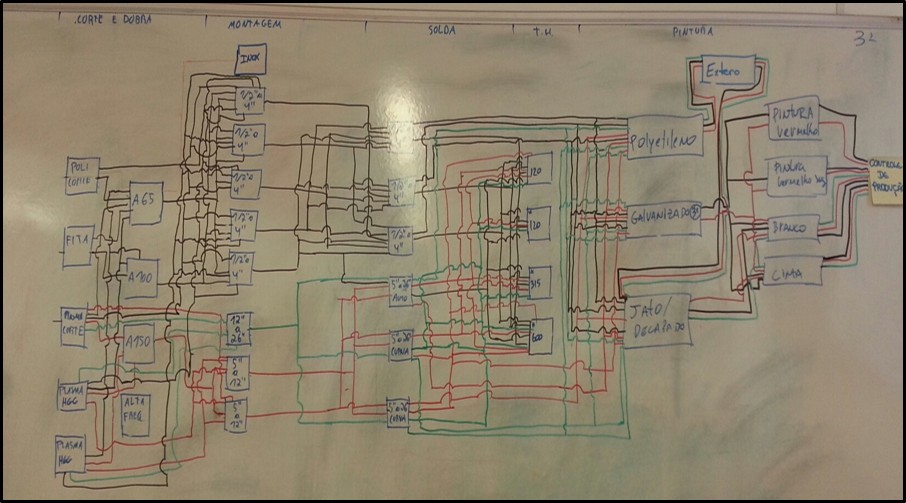 CORTE E DOBRA
MONTAGEM
SOLDA
T.H
PINTURA
32
INOX
1/2" a
4"
1/2" a
4"
1/2" a
4"
1/2" a
4"
1/2" a
4"
12"
a
26"
5"
a
12"
5"
a
12"
POLI
CORTE
FITA
PLASMA
HGG
PLASMA
HGG
A65
A100
A150
ALTA
FREQ
1/2" a
4"
5"a26
CURVA
5"a26
CURVA
120
120
315
600
Estero
POLYETILENO
GALVANIZADO
JATO/
DECAPADO
PINTURA
Vermelho
PINTURA
Vermelho
BRANCO
CIMA
CONTROLE
DE
PRODUÇÃO